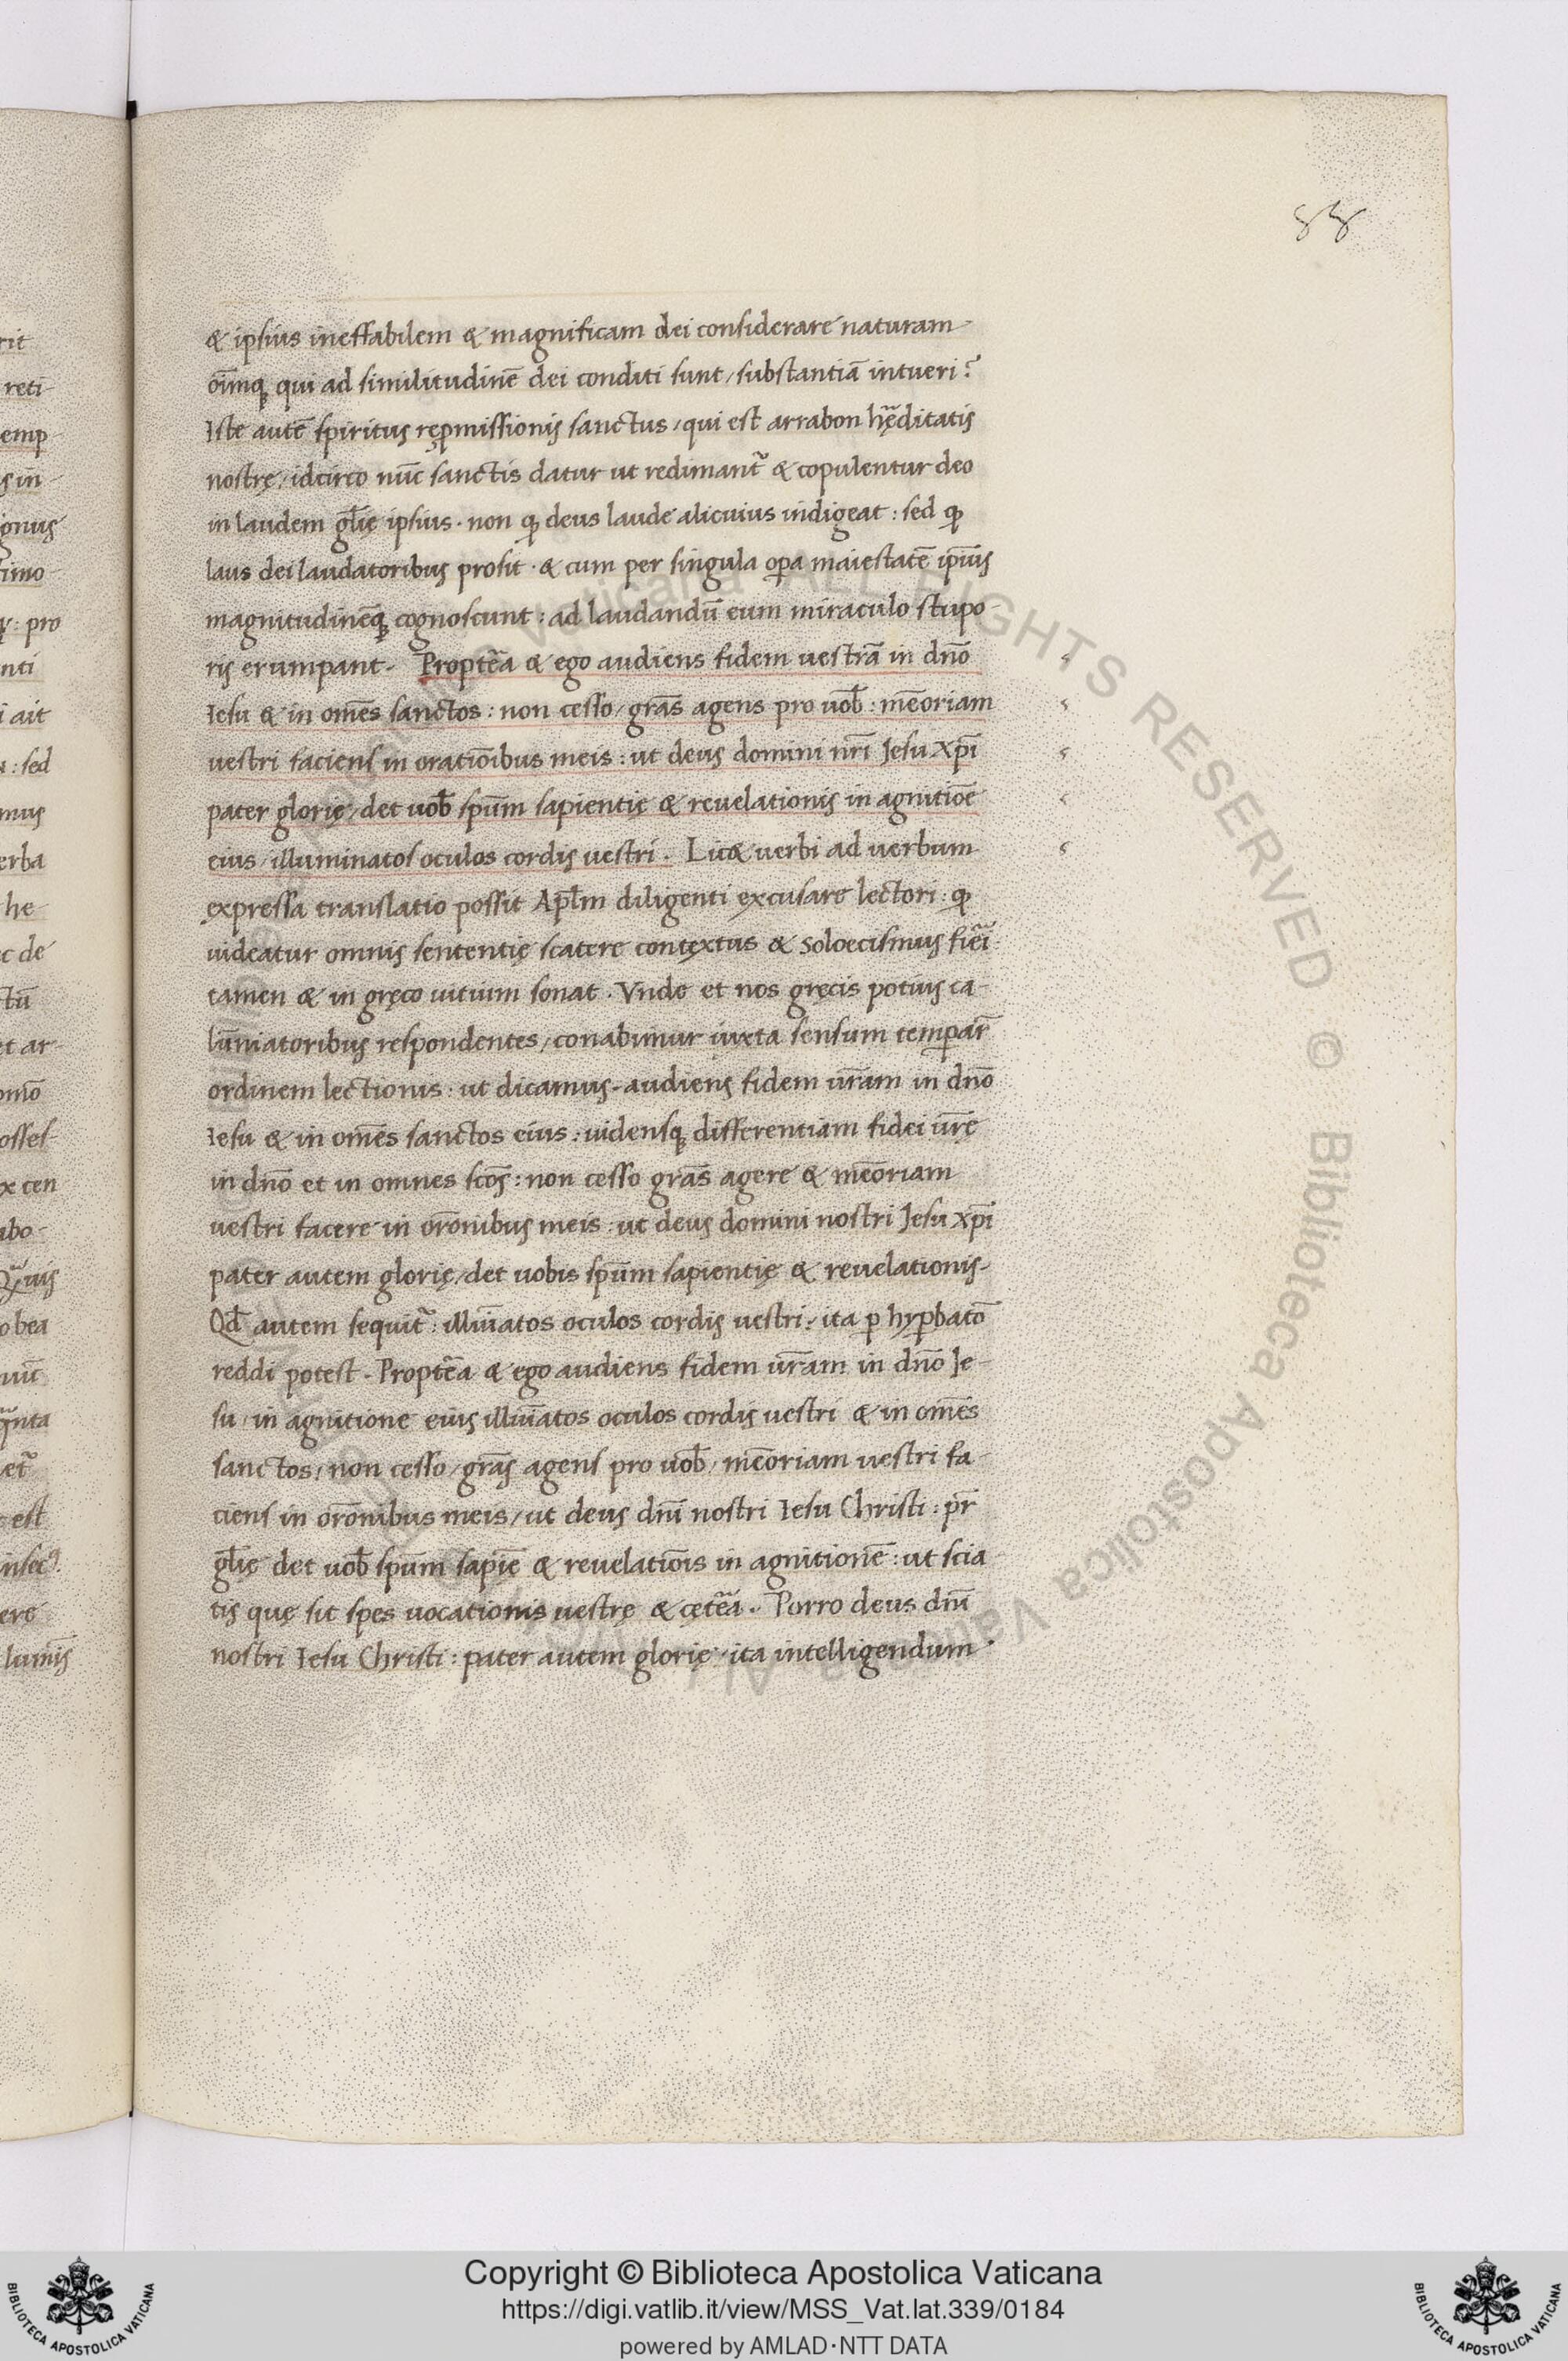 88
& ipsius ineffabilem & magnificam dei considerare naturam
oīmq qui ad similitudinē dei conditi sunt / substantiā intueri?
Iste autē spiritus repmissionis sanctus / qui est arrabon hęditatis
nostrę / idcirco nūc sanctis datur ut redimant᷑ & copulentur deo
in laudem gl̄ię ipsius · non ꝙ deus laude alicuius indigeat : sed ꝙ
laus dei laudatoribus prosit · & cum per singula oꝑa maiestatē ip̄ius
magnitudinēq cognoscunt : ad laudandū eum miraculo stupo-
ris erumpant - Proptēa & ego audiens fidem uestrā in dn̄o
Iesu & in om̄es sanctos : non cesso / gr̄as agens pro uob̄ : mēoriam
uestri faciens in oratiōibus meis : ut deus domini nr̄i Jesu xp̄i
pater glorię / det uob̄ sp̄um sapientię & reuelationis in agnitiōe
eius / illuminatos oculos cordis uestri . Lic& uerbi ad uerbum
expressa translatio possit Ap̄lm diligenti excusare lectori : ꝙ
uideatur omnis sententię scatere contextus & soloecismus fiēi
tamen & in gręco uitium sonat . Vnde et nos gręcis potius ca-
lūniatoribus respondentes / conabimur iuxta sensum temꝑar̄
ordinem lectionis : ut dicamus - audiens fidem ur̄am in dn̄o
Iesu & in om̄es sanctos eius : uidensq differentiam fidei ur̄ę
in dn̄o et in omnes sc̄os : non cesso gr̄as agere & mēoriam
uestri facere in or̄onibus meis : ut deus domini nostri Jesu xp̄i
pater autem glorię / det uobis sp̄um sapientię & reuelationis -
Qd̄ autem sequit᷑ : illuīatos oculos cordis uestri : ita ꝑ hyꝑbatō
reddi potest . Proptēa & ego audiens fidem ur̄am in dn̄o Je-
su / in agnitione eius illuīatos oculos cordis uestri & in om̄es
sanctos / non cesso / gr̄as agens pro uob̄ / mēoriam uestri fa-
ciens in or̄onibus meis / ut deus dn̄i nostri Iesu Christi : pr̄
gl̄ię det uob̄ sp̄um sapię & reuelatiōis in agnitionē : ut scia
tis quę sit spes uocationis uestrę & cętēa . Porro deus dn̄i
nostri Iesu Christi : pater autem glorię / ita intelligendum
Copyright © Biblioteca Apostolica Vaticana
https://digi.vatlib.it/view/MSS_Vat.lat.339/0184
powered by AMLAD·NTT DATA